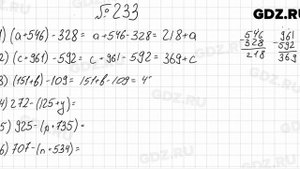 № 233
GDZ.RU
1) (a+546)-328= a+546-328= 218+a
2) (c+961)-592= c+961-592= 369+c
3) (151+b)-109= 151+b-109= 4
4) 272-(125+y)=
5) 925-(p+735)=
6) 707-(n+534)=
546
-328
218
961
-592
369
GDZ.RU